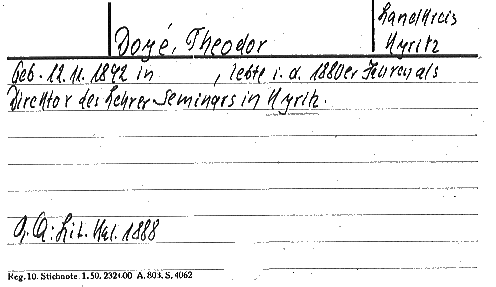 Landkreis
Doyé, Theodor
Kyritz
Geb. 12.11.1842 in , lebte i.d. 1880er Jahren als
Direktor des Lehrer-Seminars in Kyritz.
Qu: Lit. Kal. 1888
Reg. 10. Stichnote. 1.50. 2321·00 A. 803. S. 4062